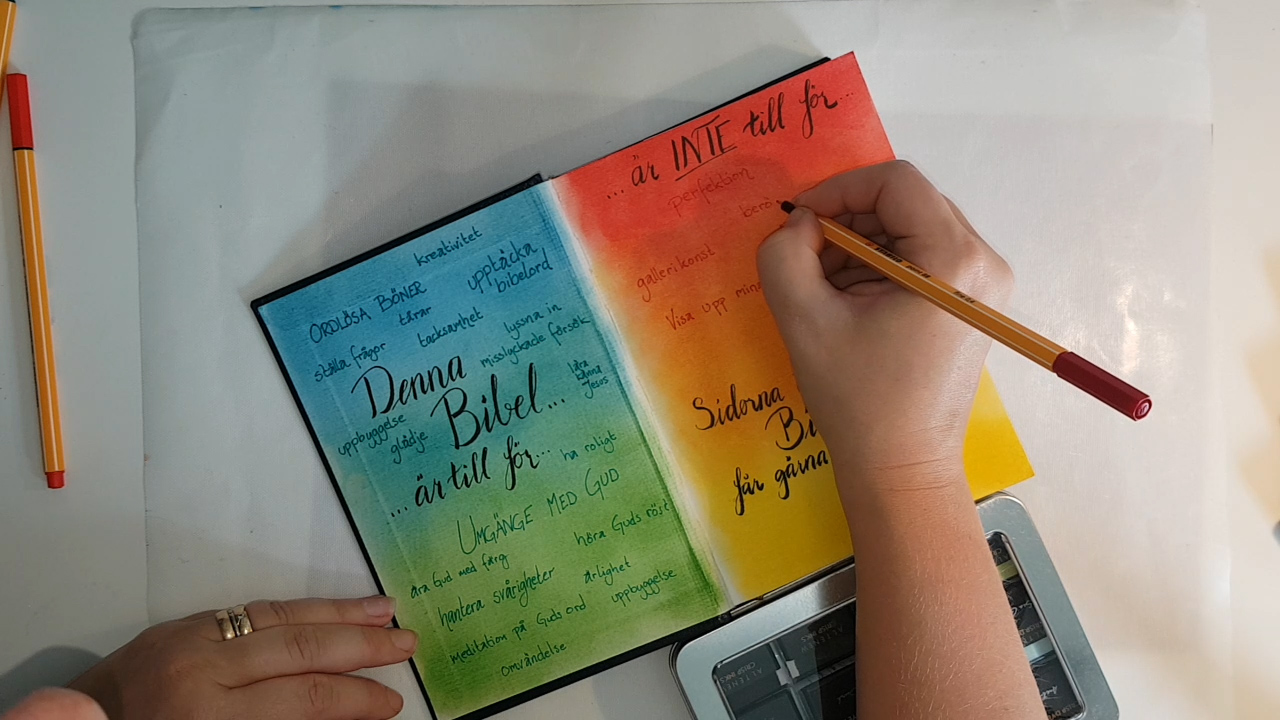 kreativitet
upptäcka
bibelord
ORDLÖSA BÖNER
tårar
tacksamhet
lyssna in
ställa frågor
misslyckade försök
lära
känna
Jesus
Denna
Bibel...
uppbyggelse
glädje
...är till för...
ha roligt
UMGÄNGE MED GUD
höra Guds röst
ära Gud med färg
hantera svårigheter
ärlighet
meditation på Guds ord
uppbyggelse
omvändelse
...är INTE till för...
perfektion
gallerikonst
Visa upp
Sidorna
får gärna